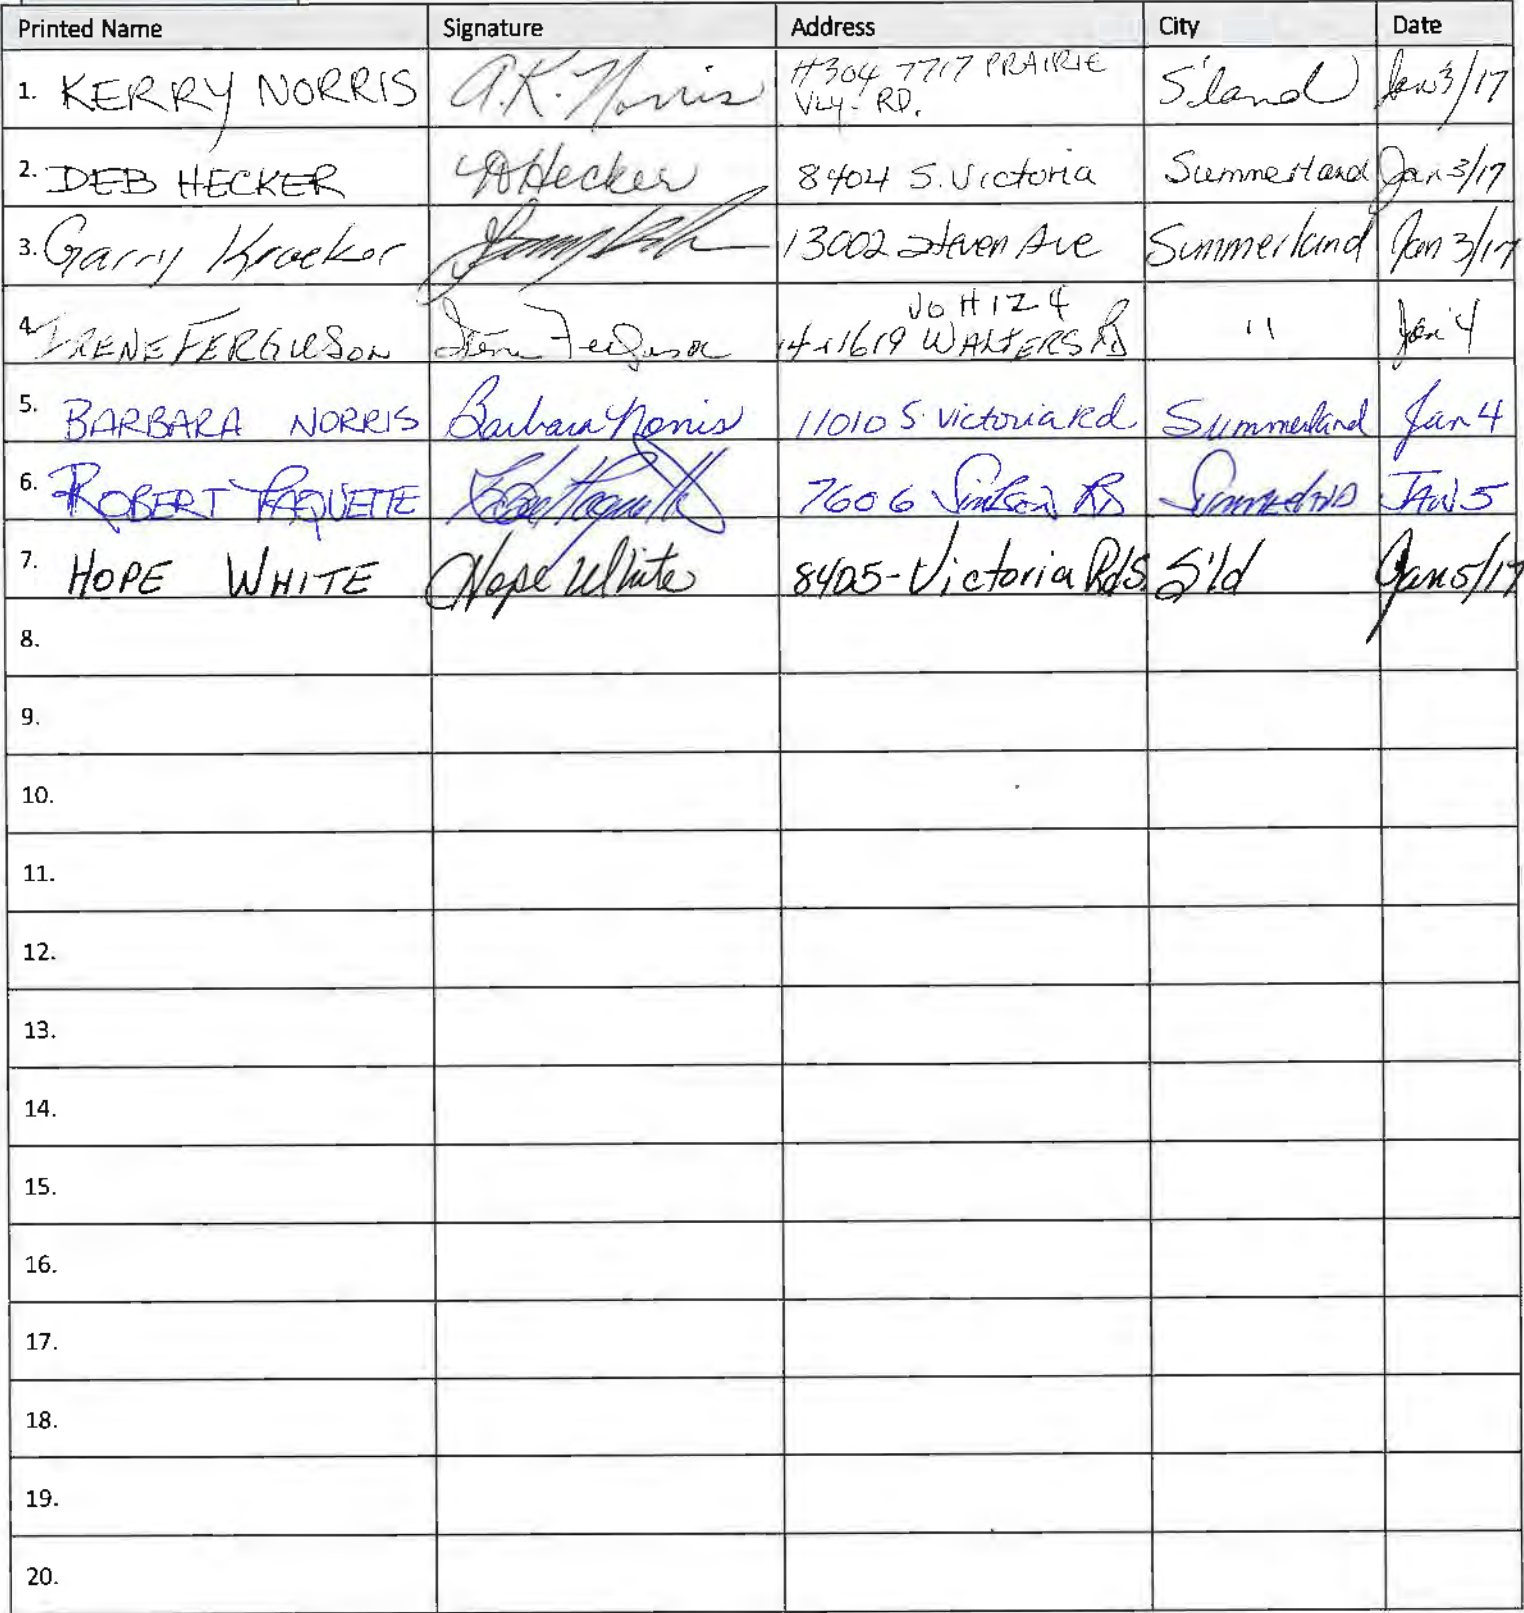 Printed Name Signature Address City Date
1. KERRY NORRIS A.K. Norris #304 7717 PRAIRIE VLY- RD. S'land Jan 3/17
2. DEB HECKER D Hecker 8404 S. Victoria Summerland Jan 3/17
3. Garry Kroeker 13002 Steven Ave Summerland Jan 3/17
4. IRENE FERGUSON Irene Ferguson V0H1Z4 WALTERS Rd " Jan 4
5. BARBARA NORRIS Barbara Norris 11010 S. Victoria Rd. Summerland Jan 4
6. ROBERT PAQUETTE 7606 RD JAN 5
7. HOPE WHITE Hope White 8405-Victoria Rd S. S'ld Jan 5/17
8.
9.
10.
11.
12.
13.
14.
15.
16.
17.
18.
19.
20.